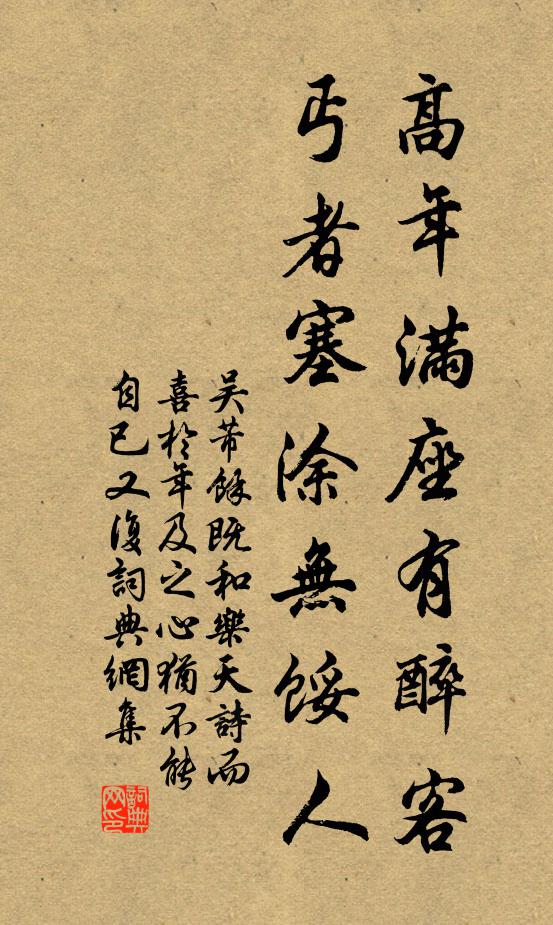 高年滿座有醉客
丐者塞涂無餒人
吳芾餘既和樂天詩而
喜於年及之心猶不能
自已又復詞典網集
詞典網印